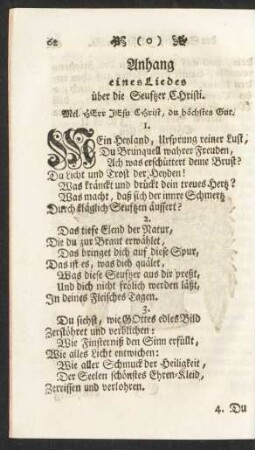 62 ( o )
Anhang
eines Liedes
über die Seufzer CHristi.
Mel. HErr JEsu CHrist, du höchstes Gut.
1.
MEin Heyland, Ursprung reiner Lust,
Du Brunquell wahrer Freuden,
Ach was erschüttert deine Brust?
Du Licht und Trost der Heyden!
Was kränckt und drückt dein treues Hertz?
Was macht, daß sich der innre Schmertz
Durch kläglich Seuftzen äussert?
2.
Das tiefe Elend der Natur,
Die du zur Braut erwählet,
Das bringet dich auf diese Spur,
Das ist es, was dich quälet,
Was diese Seufzer aus dir preßt,
Und dich nicht frölich werden läßt,
In deines Fleisches Tagen.
3.
Du siehst, wie GOttes edles Bild
Zerstöhret und verblichen:
Wie Finsterniß den Sinn erfüllt,
Wie alles Licht entwichen:
Wie aller Schmuck der Heiligkeit,
Der Seelen schönstes Ehren-Kleid,
Zerrissen und verlohren.
4. Du